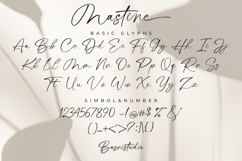 Mastine
BASIC GLYPHS
Aa Bb Cc Dd Ee Ff Gg Hh Ii Jj
Kk Ll Mm Nn Oo Pp Qq Rr Ss
Tt Uu Vv Ww Xx Yy Zz
SIMBOL&NUMBER
1234567890 -!@#$%^&*
()_+<>?:/\{}
Basnistudio